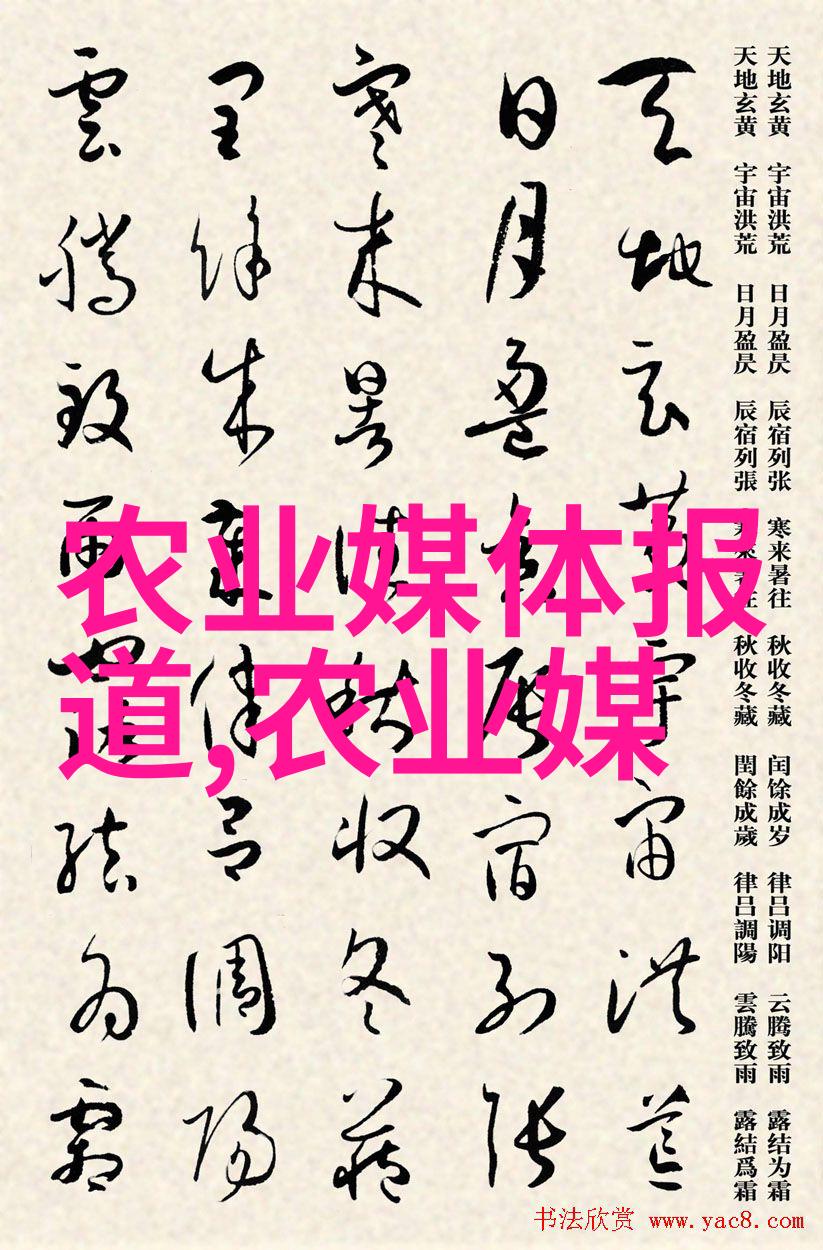 天地玄黄 宇宙洪荒 日月盈昃 辰宿列张 寒来暑往 秋收冬藏 闰馀成岁 律吕调阳 云腾致雨 露结为霜
天地玄黄 宇宙洪荒 日月盈昃 辰宿列張 寒來暑往 秋收冬藏 閏餘成歲 律吕調陽 雲騰致雨 露結爲霜
天地玄黄宇宙洪荒
日月盈昃辰宿列張
寒来暑往秋收冬藏
閏餘成歲律吕調陽
雲騰致雨露結为霜
农业媒体报
道,农业媒
书法欣赏 www.yac8.com